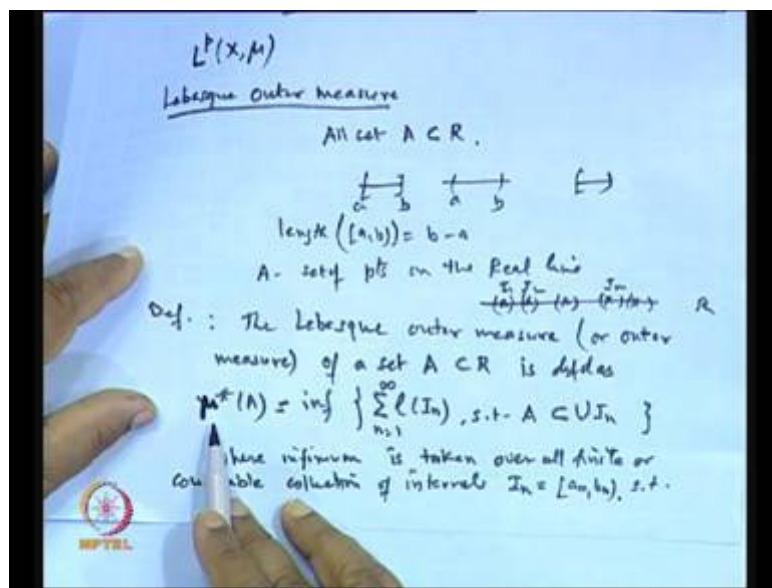 L^p(X, μ)
Lebesgue Outer Measure
All set A ⊂ R.
a b a b
length ([a,b)) = b-a
A - set of pts on the Real line
I_1 I_2 I_n
R
Def. : The Lebesgue outer measure (or outer
measure) of a set A ⊂ R is defd as
μ*(A) = inf { ∑_{n=1}^{∞} l(I_n), s.t. A ⊂ ∪I_n }
where infimum is taken over all finite or
countable collection of intervals I_n = [a_n, b_n), s.t.
NPTEL